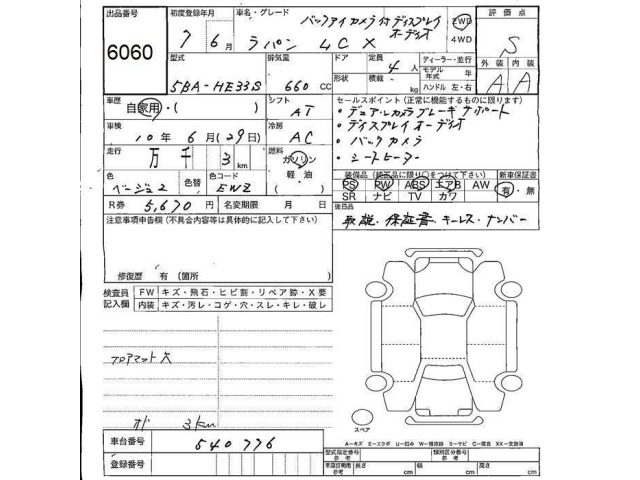 出品番号 6060
初度登録年月 7年 6月
車名・グレード バックアイカメラ付ディスプレイオーディオ
ラパン LCX
2WD
4WD
評価点 S
外装 内装
A A
型式 5BA-HE33S
排気量 660 CC
ドア 形状
定員 4人
積載 kg
ディーラー・並行
モデル年式 年
ハンドル 左・右
車歴 自家用・( )
シフト AT
セールスポイント(正常に機能するものに限ります)
・デュアルカメラブレーキサポート
・ディスプレイオーディオ
・バックカメラ
・シートヒーター
車検 10年 6月(29日)
冷房 AC
走行 万 千 3 km
燃料 ガソリン
軽油
( )
色 ベージュ2
色替
色コード EWZ
装備品(純正品に限り○をつけて下さい)
PS PW ABS エアB AW
SR ナビ TV カワ
新車保証書
有・無
R券 5,670円
名変期限 月 日
後日品
取説・保証書・キーレス・ナンバー
注意事項申告欄(不具合内容等は具体的に記入して下さい)
修復歴 有(箇所 )
検査員記入欄
FW キズ・飛石・ヒビ割・リペア跡・X要
内装 キズ・汚レ・コゲ・穴・スレ・キレ・破レ
フロアマット欠
オド 3km
スペア
A-キズ E-エクボ U-凹み W-補修跡 S-サビ C-腐食 XX-交換済
車台番号 540776
登録番号
型式指定番号 参考
類別区分番号 参考
車庫証明用 参考
長さ cm 幅 cm 高さ cm